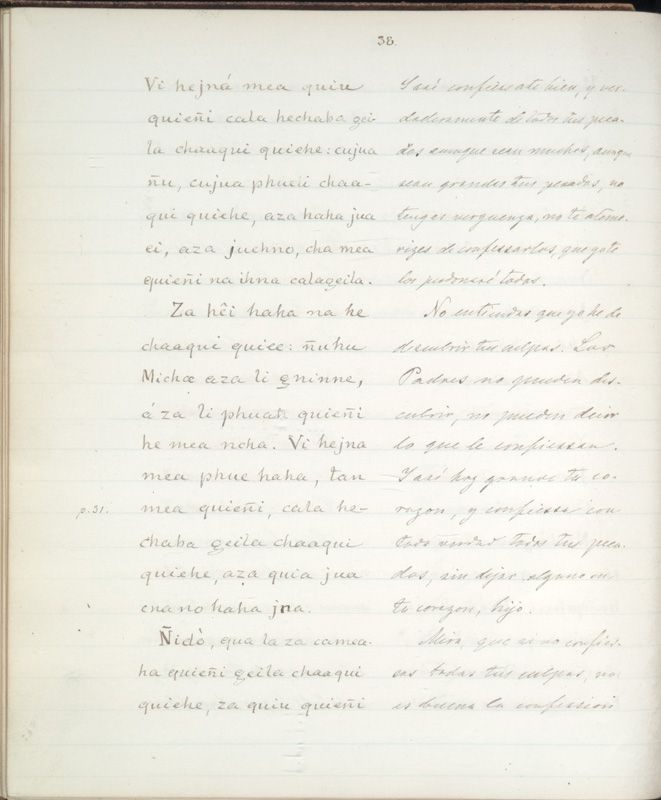 38.
Vi hejná mea quiu
quieñi cala hechaba gei-
la chaaqui quiehe: cujua
ñu, cujua phueii chaa-
qui quiehe, aza haha jua
ei, aza juchno, cha mea
quieñi na ihna calageila.
Za hêi haha na he
chaaqui quiee: ñuhu
Michæ aza li gninne,
á za li phuati quieñi
he mea ncha. Vi hejna
mea phue haha, tan
p. 31. mea quieñi, cala he-
chaba geila chaaqui
quiehe, aza quia jua
cna no haha jna.
Ñidò, qua la za camea-
ha quieñi geila chaaqui
quiehe, za quiu quieñi
I asi confiesate bien, y ver-
daderamente de todos tus peca-
dos aunque sean muchos, aunque
sean grandes tus pecados, no
tengas verguenza, no te atemo-
rizes de confessarlos, que yo te
los perdonaré todos.
No entiendas que yo he de
descubrir tus culpas. Los
Padres no pueden des-
cubrir, no pueden decir
lo que le confiessan.
I asi haz grande tu co-
razon, y confiessa con
toda verdad todos tus peca-
dos, sin dejar alguno en
tu corazon, hijo.
Mira, que si no confies-
sas todas tus culpas, no
es buena la confession